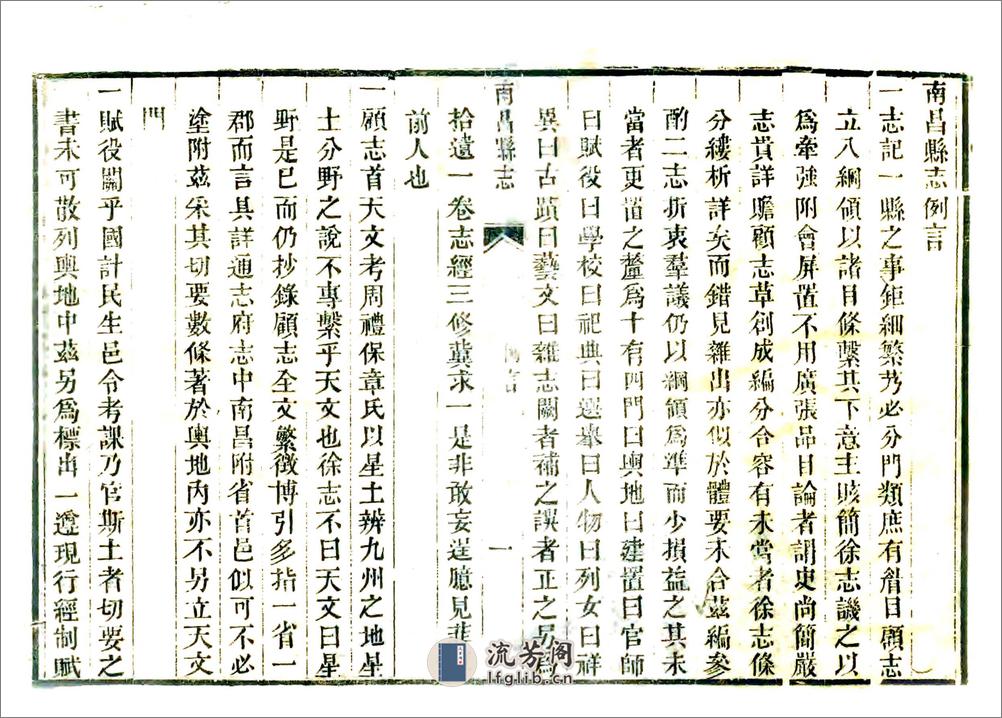 南昌縣志例言
一志記一縣之事鉅細繁夥必分門類庶有眉目顧志
立八綱領以諸目條繫其下意主賅簡徐志譏之以
爲牽強附會屏置不用廣張品目論者謂史尚簡嚴
志貴詳贍顧志草創成編分合容有未當者徐志條
分縷析詳矣而錯見雜出亦似於體要未合茲編參
酌二志折衷羣議仍以綱領爲準而少損益之其未
當者更啚之釐爲十有四門曰輿地曰建置曰官師
曰賦役曰學校曰祀典曰選舉曰人物曰列女曰祥
異曰古蹟曰藝文曰雜志闕者補之誤者正之另爲
南昌縣志
例言
一
拾遺一卷志經三修冀求一是非敢妄逞臆見非
前人也
一顧志首天文考周禮保章氏以星土辨九州之地星
土分野之說不專繫乎天文也徐志不曰天文曰星
野是已而仍抄錄顧志全文繁徵博引多指一省一
郡而言具詳通志府志中南昌附省首邑似可不必
塗附茲采其切要數條著於輿地內亦不另立天文
門
一賦役關乎國計民生邑令考課乃官斯土者切要之
書未可散列輿地中茲另爲標出一遵現行經制賦
流芳阁
lfglib.cn